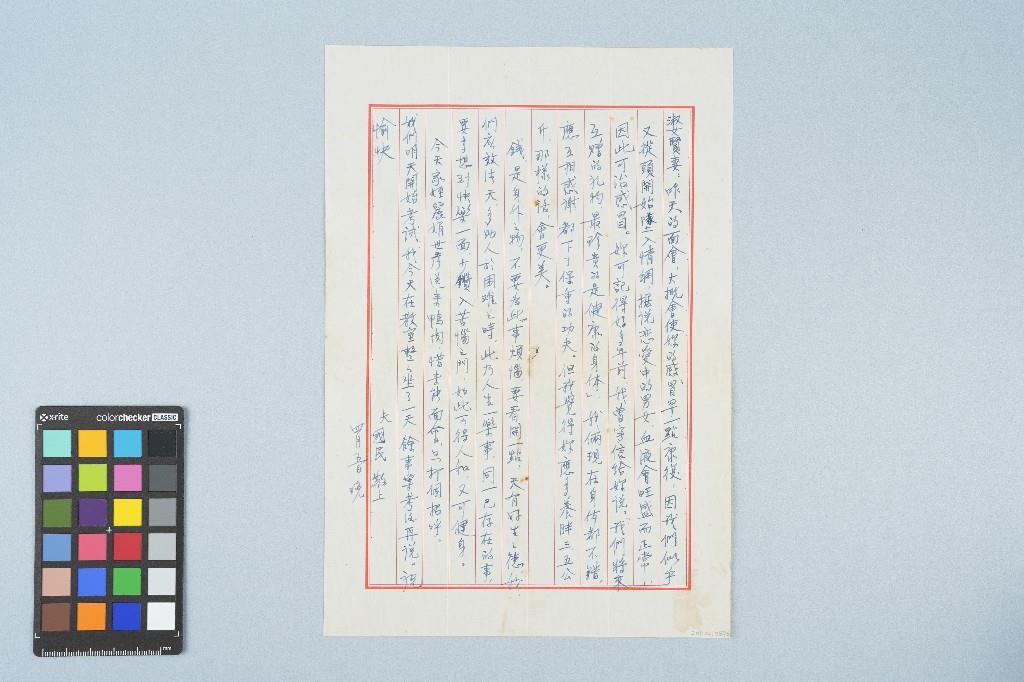 淑女賢妻：昨天的面會，大概會使妳的感冒早一點康復，因我們似乎
又從頭開始墜入情網，據說戀愛中的男女，血液會旺盛而正常，
因此可治感冒。妳可記得好多年前，我曾寫信給妳說，我們將來
互贈的禮物，最珍貴的是健康的身體，我倆現在身体都不錯，
應互相感謝都下了保重的功夫。但我覺得妳應多養胖三五公
斤，那樣的話，會更美。
錢，是身外之物，不要為此事煩惱，要看開一點，天有好生之德，我
們應效法天，多助人於困難之時，此乃人生一樂事，同一已存在的事，
要多想到快樂一面，少鑽入苦惱之門，如此可得人和，又可健身。
今天家姪麗娟世彥送來鴨肉，惜未能面會，只打個招呼。
我們明天開始考試，我今天在教室整整坐了一天，餘事等考後再說。祝
愉快
夫國民 敬上
四月五日晚
x-rite
colorchecker CLASSIC
mm